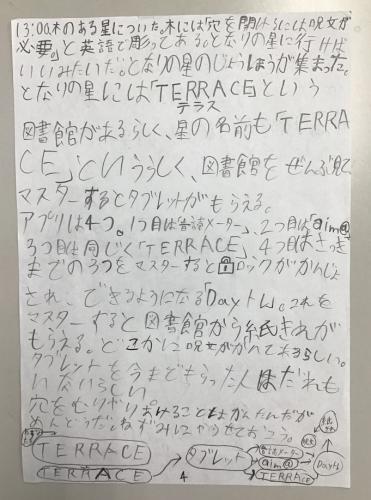 13:00木のある星についた。木には「穴を開けるには呪文が
必要。」と英語で彫ってある。となりの星に行けば
いいみたいだ。となりの星のじょうほうが集まった。
となりの星には「TERRACE」という
テラス
図書館があるらしく、星の名前も「TERRA
CE」というらしく、図書館をぜんぶ
マスターするとタブレットがもらえる。
アプリは4つ。1つ目は メーター」、2つ目は「aim@」
3つ目は同じく「TERRACE」4つ目はさっき
までの3つをマスターすると ロックがかいじょ
され、できるようになる「Day 。これを
マスターすると図書館から紙きれが
もらえる。どこかに呪文がかかれてあるらしい。
タブレットを今までもらった人はだれも
いないらしい
穴をむりやりあけることはかんたんだが
めんどうだ。ねずみにやらせておこう。
TERRACE
TERRACE
タブレット
メーター
aim@
TERRACE
呪文
4